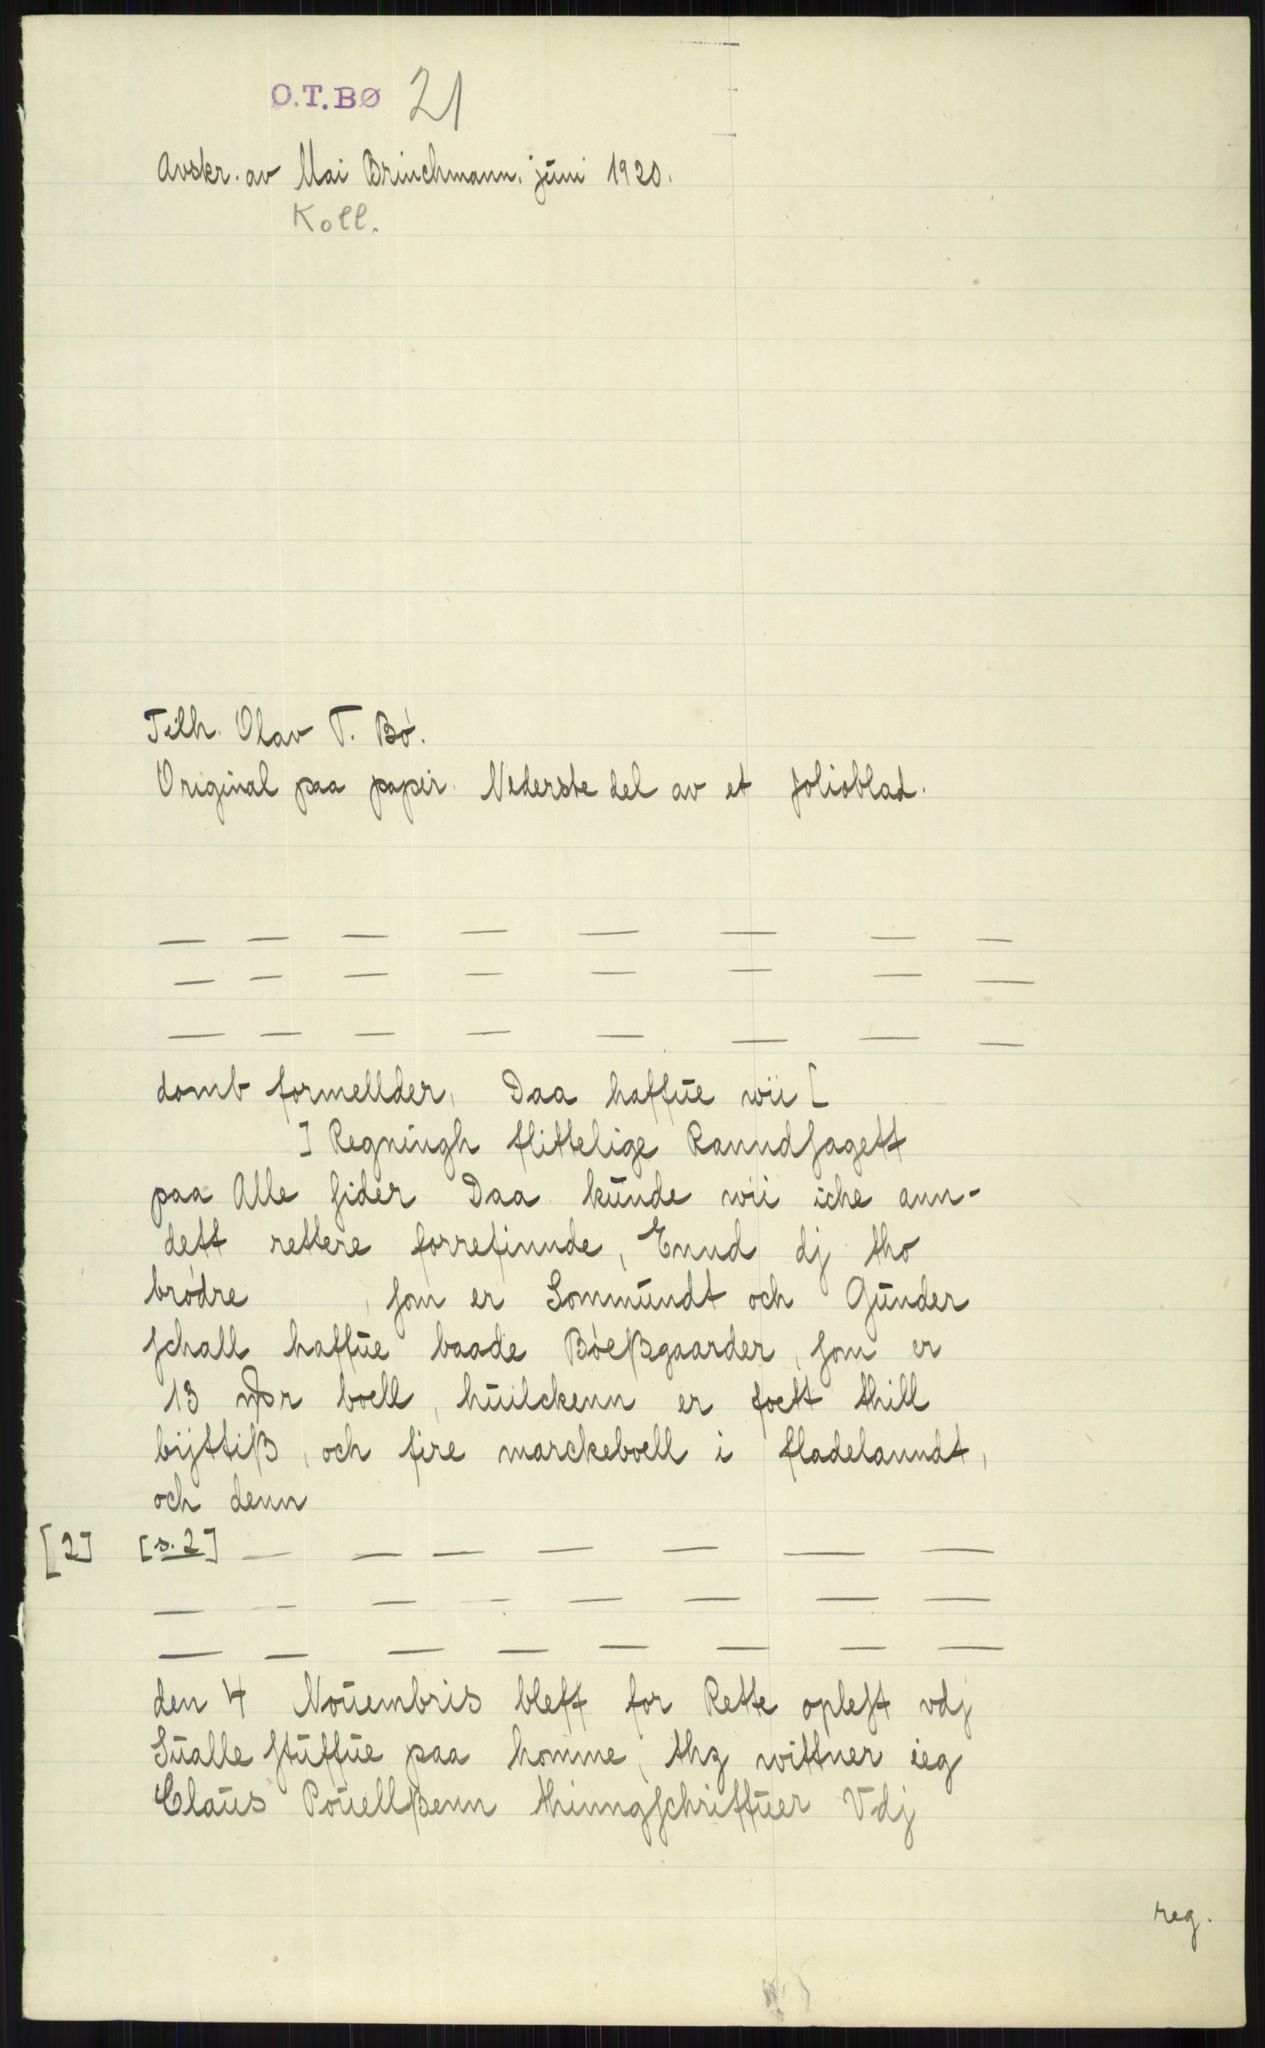 O.T.BØ 21
Avskr. av Mai Brinchmann. juni 1920.
Koll.
Tilh. Olav T. Bø.
Original paa papir. Nederste del av et folioblad.
— — — — — — — —
— — — — — — — —
— — — — — — — —
domb formellder, Daa haffue wii [
] Regningh flittelige Ranndsagett
paa Alle sider Daa kunde wii iche ann-
dett rettere forrefinnde, Ennd dj tho
brødre , som er Sommundt och Gunder
schall haffue baade Bøeßgaarder, som er
13 boell, huilckenn er foett thill
bijttiß, och fire marckeboell i fladelanndt,
och denn
[2] [s. 2] — — — — — — —
— — — — — — — —
— — — — — — — —
den 4 Nouembris bleff for Rette oplest vdj
Sualle stuffue paa homme, thz wittner ieg
Claus Pouellßenn thinngschriffuer Vdj
reg.